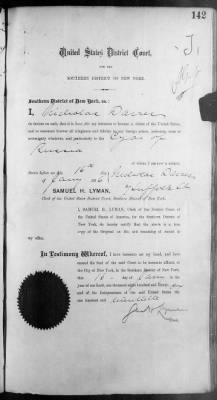 142
United States District Court,
FOR THE
SOUTHERN DISTRICT OF NEW YORK.
Southern District of New York, ss:
I, Nicholas
do declare on oath, that it is bona fide my intention to become a citizen of the United States,
and to renounce forever all allegiance and fidelity to any foreign prince, potentate, state or
sovereignty whatever, and particularly to the Czar of
Russia
of whom I am now a subject.
Sworn before me this 16th
SAMUEL H. LYMAN,
Clerk of the United States District Court, Southern District of New York.
I, SAMUEL H. LYMAN, Clerk of the District Court of the
United States of America, for the Southern District
of New York, do hereby certify that the above is a true
copy of the Original on file and remaining of record in
my office.
In Testimony Whereof, I have hereunto set my hand, and have
caused the Seal of the said Court to be hereunto affixed, at
the City of New York, in the Southern District of New York,
this 16 day of in the
year of our Lord, one thousand eight hundred and
and of the Independence of the said United States the
one hundred and
Clerk.